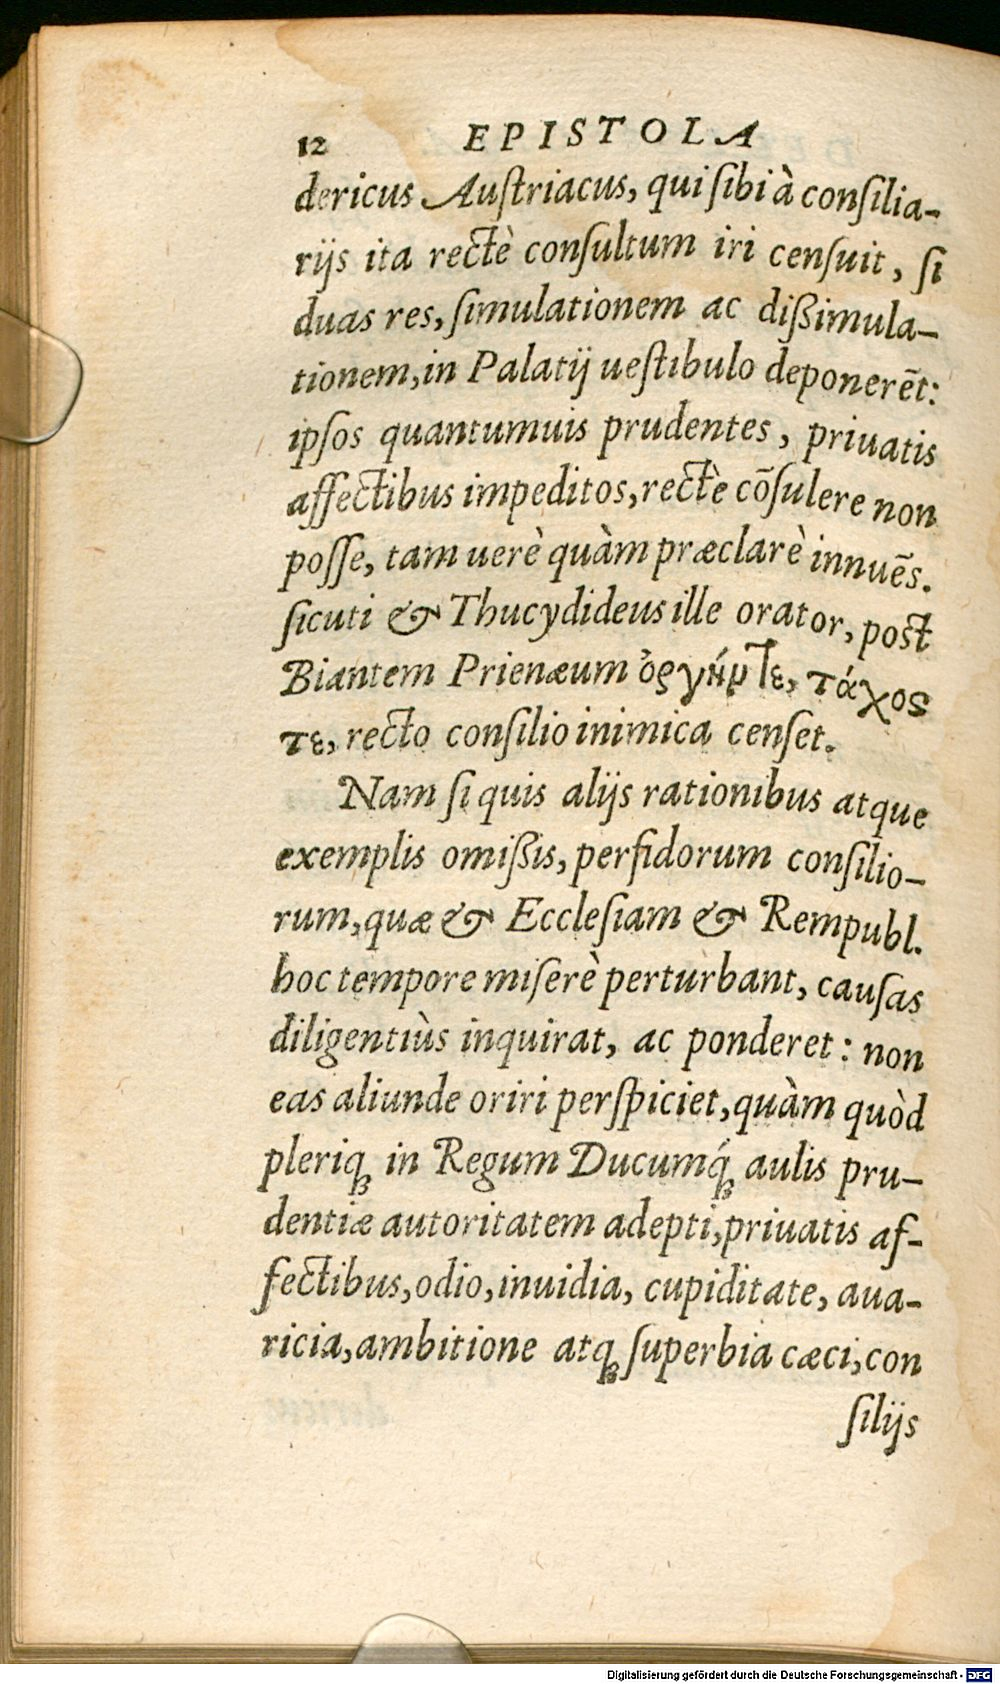 12 EPISTOLA
dericus Auſtriacus, qui ſibi à conſilia-
rijs ita rectè conſultum iri cenſuit, ſi
duas res, ſimulationem ac dißimula-
tionem, in Palatij ueſtibulo deponerēt:
ipſos quantumuis prudentes, priuatis
affectibus impeditos, rectè cōſulere non
poſſe, tam uerè quàm præclarè innuēs.
ſicuti & Thucydideus ille orator, post
Biantem Prienæum ὀργήμ τε, τάχος
τε, recto conſilio inimica cenſet.
Nam ſi quis alijs rationibus atque
exemplis omißis, perfidorum conſilio-
rum, quæ & Eccleſiam & Rempubl.
hoc tempore miſerè perturbant, cauſas
diligentiùs inquirat, ac ponderet: non
eas aliunde oriri perſpiciet, quàm quòd
pleriq; in Regum Ducumq́; aulis pru-
dentiæ autoritatem adepti, priuatis af-
fectibus, odio, inuidia, cupiditate, aua-
ricia, ambitione atq; ſuperbia cæci, con
ſilijs
Digitalisierung gefördert durch die Deutsche Forschungsgemeinschaft - DFG